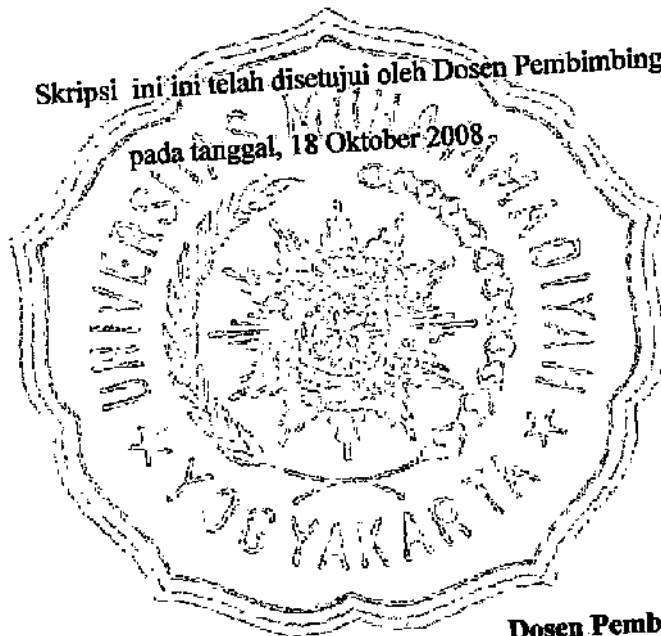 Skripsi ini ini telah disetujui oleh Dosen Pembimbing
pada tanggal, 18 Oktober 2008
UNIVERSITAS MUHAMMADIYAH
YOGYAKARTA
Dosen Pemb